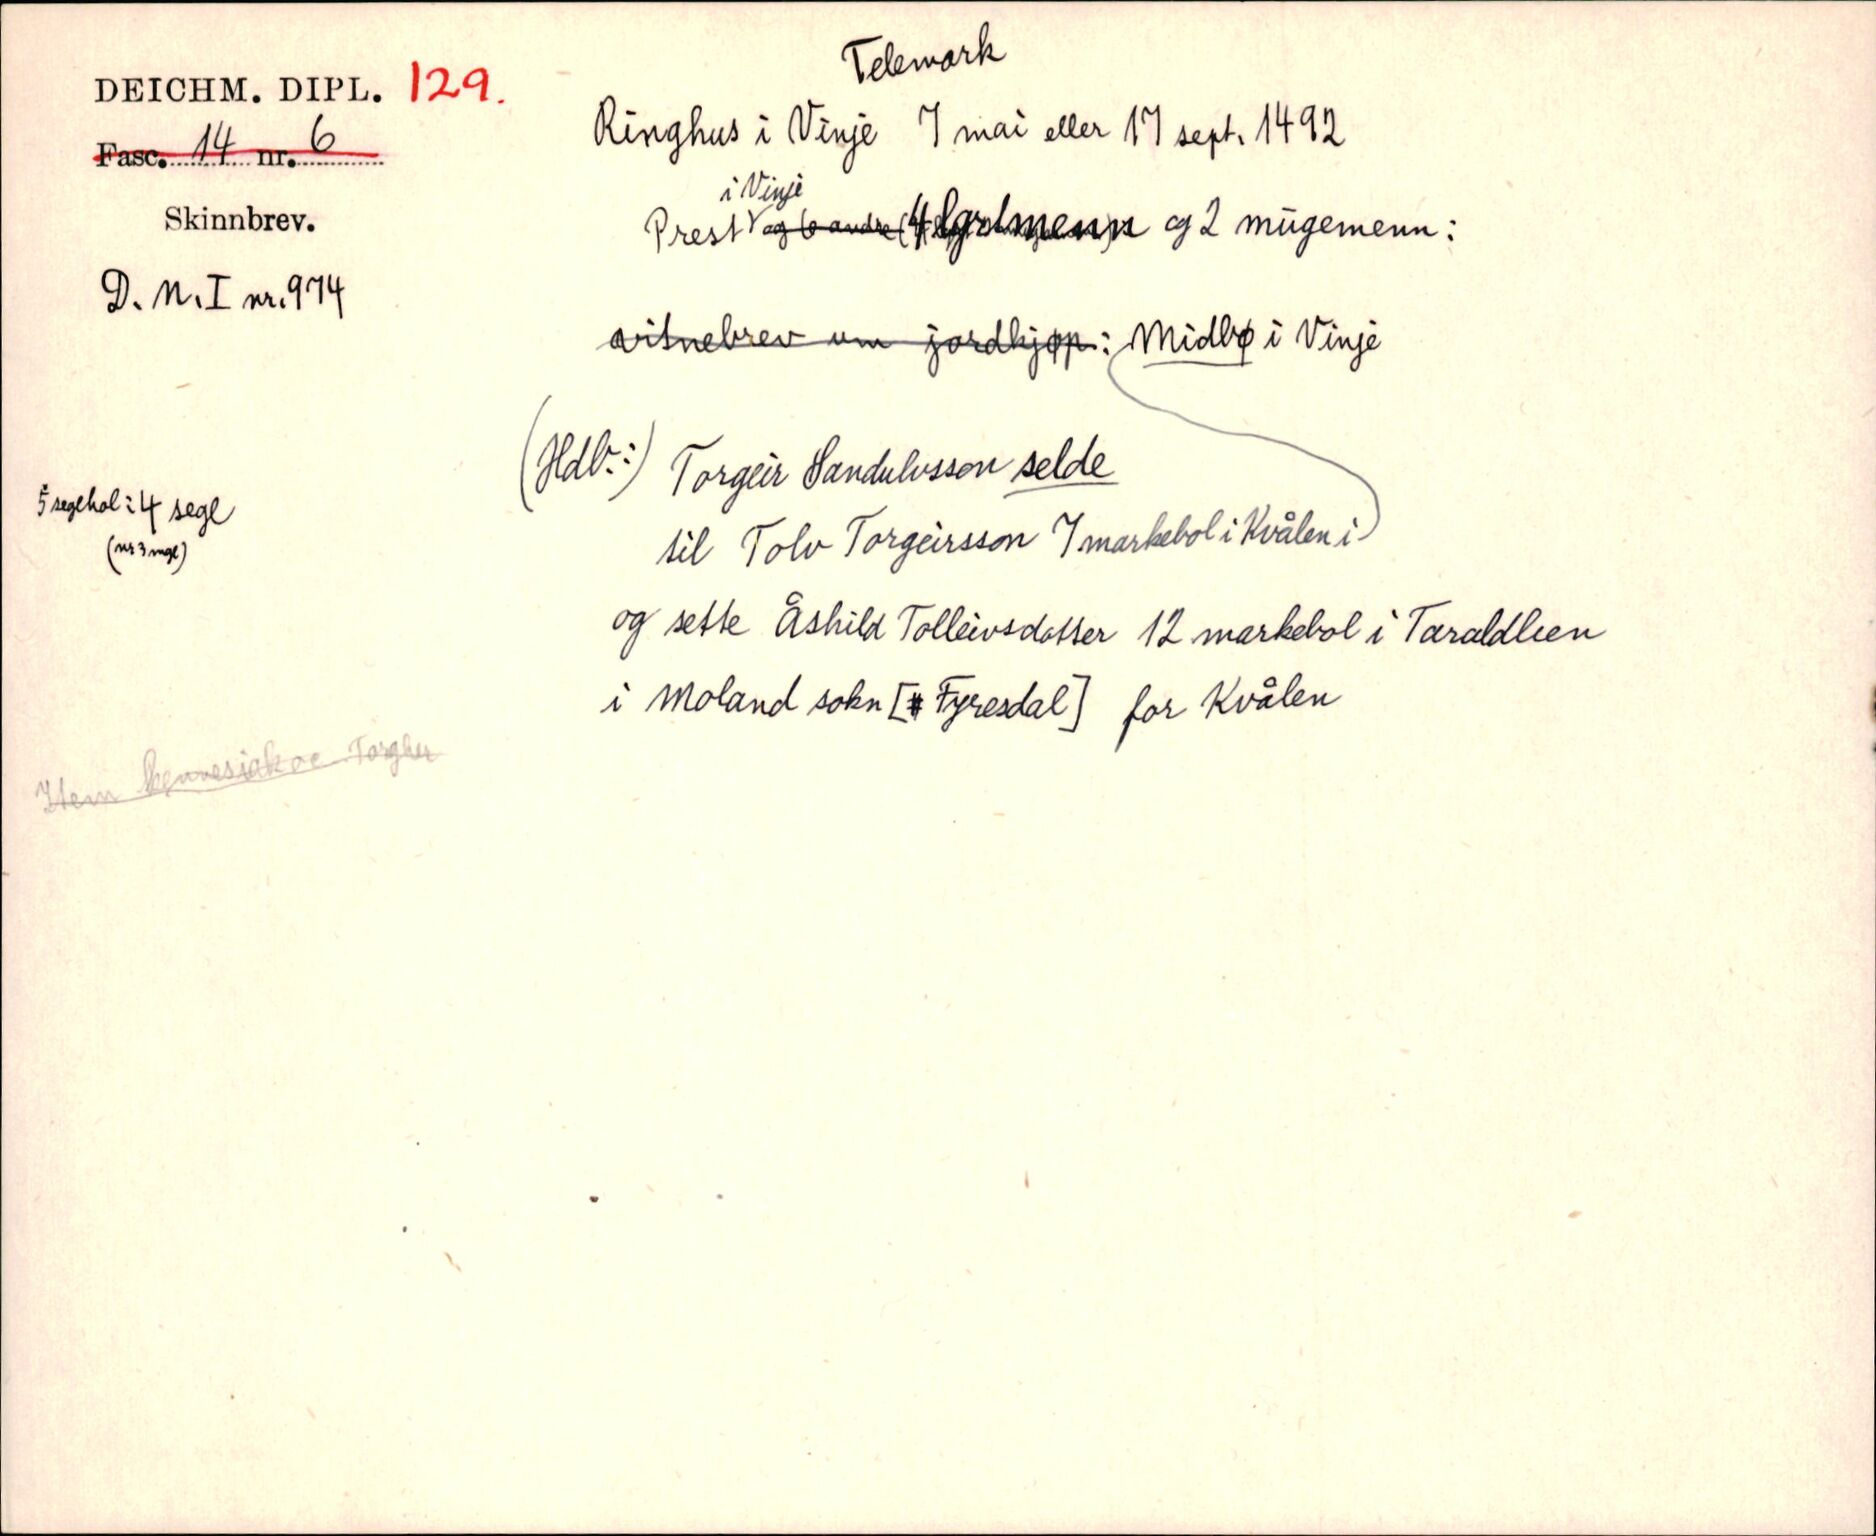 Telemark
DEICHM. DIPL. 129.
Fasc. 14 nr. 6
Skinnbrev.
D. N. I nr. 974
Ringhus i Vinje 7 mai eller 17 sept. 1492
i Vinje
Prest og 6 andre (4 lgrdmenn og 2 mugemenn:
vitnebrev um jordkjøp: Midbø i Vinje
(Hdlr:) Torgeir Sandulvsson selde
til Tolv Torgeirsson 7 markebol i Kvålen i
og sette Åshild Tolleivsdotter 12 markebol i Taraldlien
i Moland sokn [Fyresdal] for Kvålen
5 segehol: 4 segl
(nr 3 mgl)
Item kennesiak oc Torgher